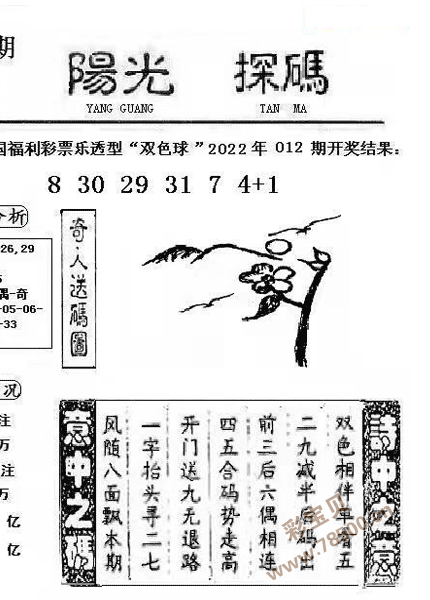 期
陽光 探碼
YANG GUANG TAN MA
国福利彩票乐透型“双色球”2022年 012 期开奖结果:
8 30 29 31 7 4+1
分析
26,29
5
偶-奇
-05-06-
-33
奇人送碼圖
况
注
万
注
万
亿
亿
詩中之意
双色相伴单看五
二九减半后码出
前三后六偶相连
四五合码势走高
开门送九无退路
一字抬头寻二七
风随八面飘本期
意中之情
彩宝贝
www.78500.cn